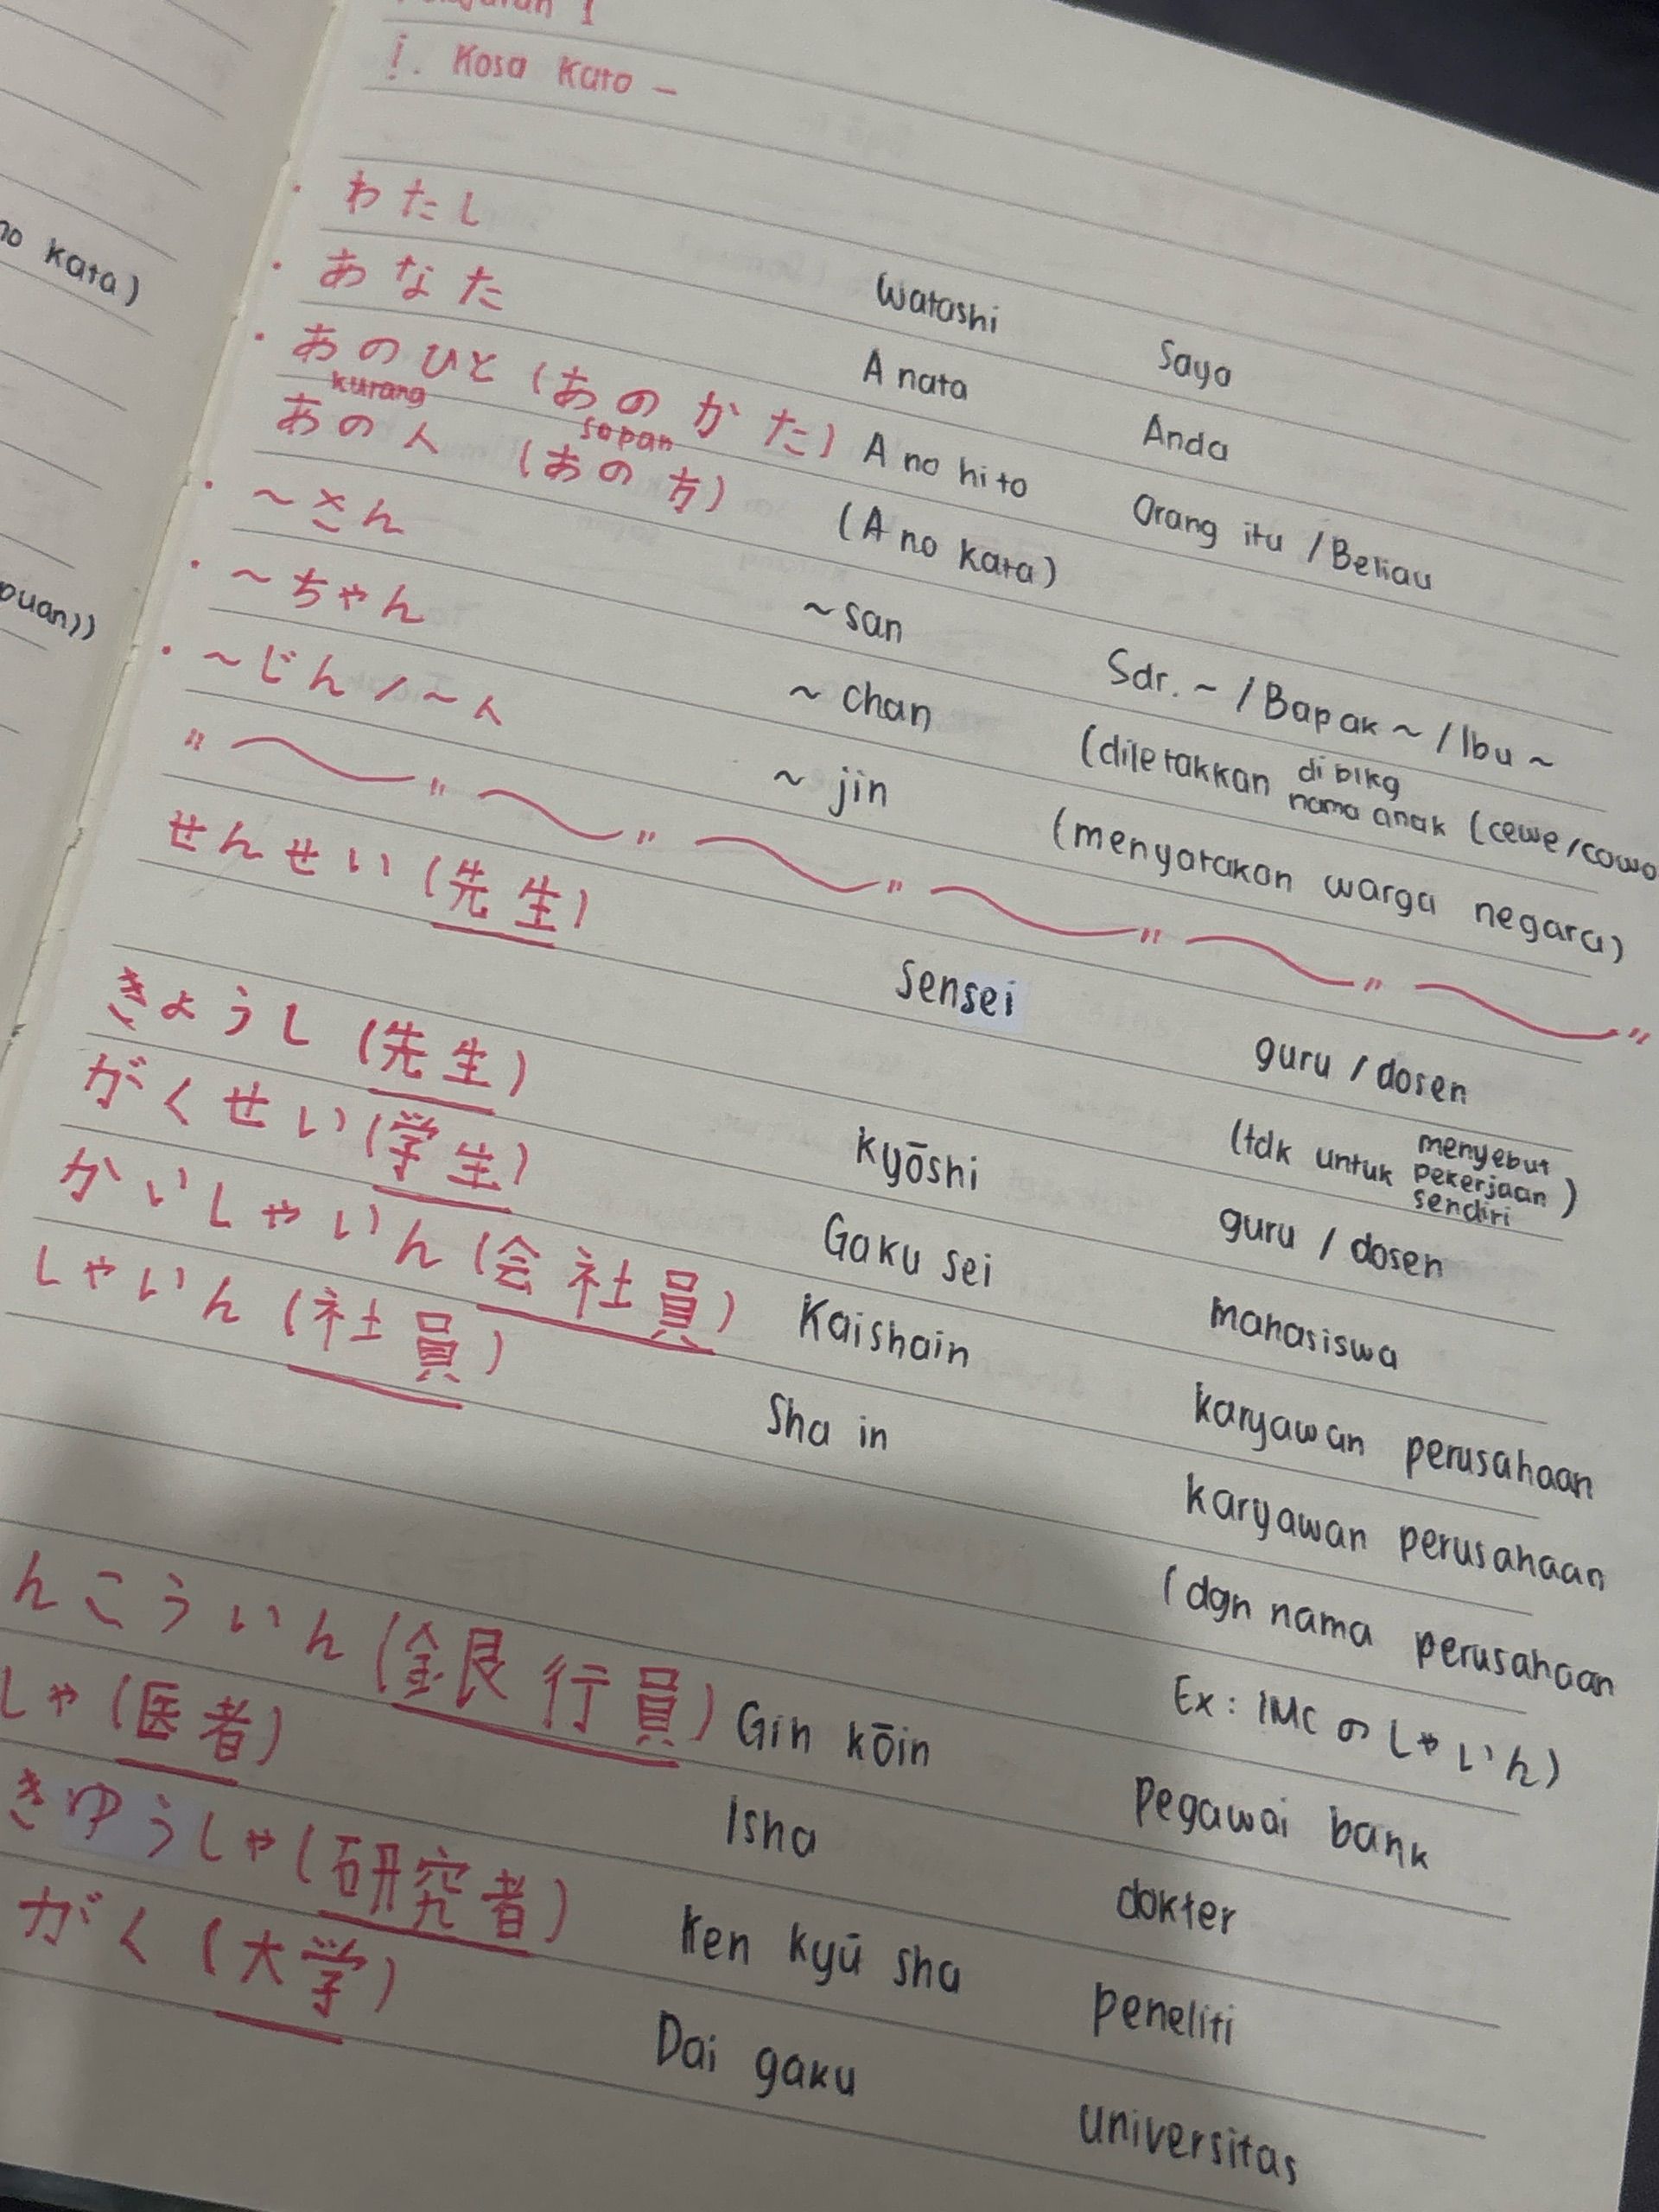 1
!. Kosa Kata -
no kata)
puan))
• わたし Watashi Saya
• あなた A nata Anda
• あのひと (あのかた) A no hito Orang itu / Beliau
kurang sopan
あの人 (あの方) (A no kata)
• ~さん ~san Sdr. ~ / Bapak ~ / Ibu ~
• ~ちゃん ~ chan (diletakkan di blkg nama anak (cewe/cowo
• ~じん / ~人 ~ jin (menyatakan warga negara)
せんせい (先生) Sensei guru / dosen
(tdk untuk menyebut pekerjaan sendiri)
きょうし (先生) kyōshi guru / dosen
がくせい (学生) Gaku sei mahasiswa
かいしゃいん (会社員) Kaishain karyawan perusahaan
しゃいん (社員) Sha in karyawan perusahaan
(dgn nama perusahaan
Ex : IMC のしゃいん)
んこういん (銀行員) Gin kōin Pegawai bank
しゃ (医者) Isha dokter
きゆうしゃ (研究者) Ken kyū sha peneliti
がく (大学) Dai gaku universitas